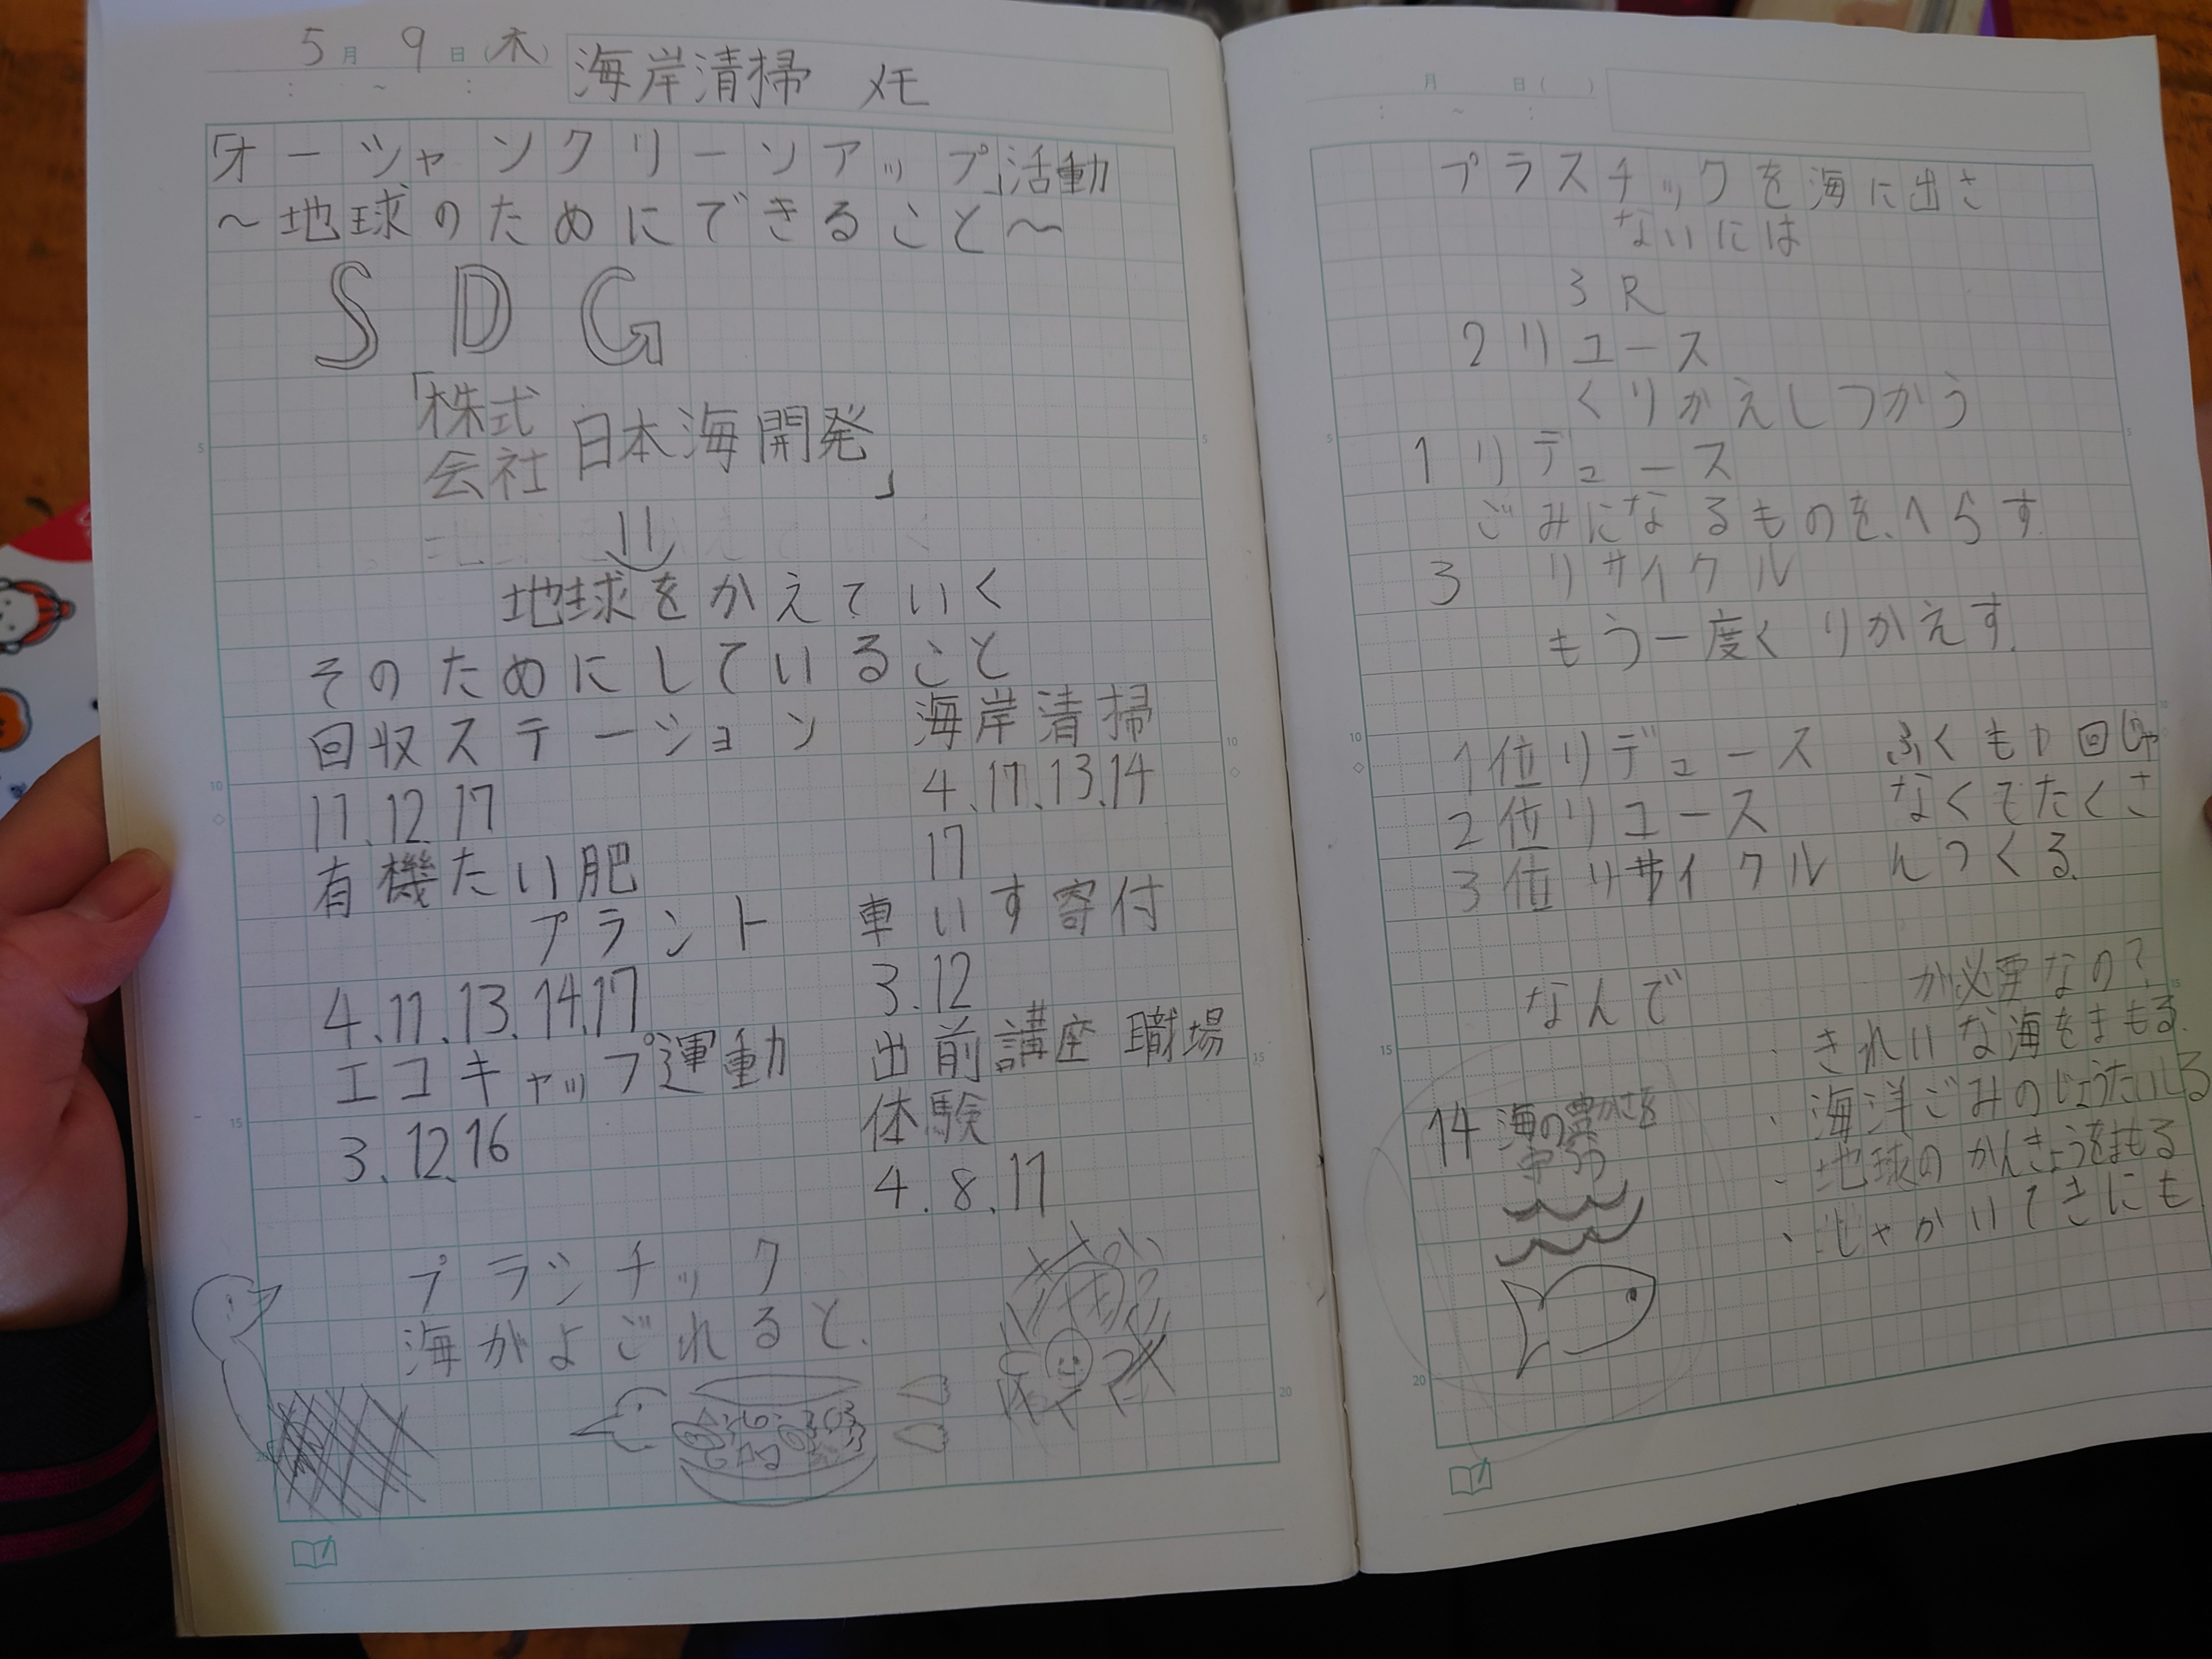 5月 9日(木) 海岸清掃 メモ
「オーシャンクリーンアップ」活動
～地球のためにできること～
SDG
「株式会社 日本海開発」
地球をかえていく
そのためにしていること
回収ステーション
11.12.17
有機たい肥
プラント
4.11.13.14.17
エコキャップ運動
3.12.16
海岸清掃
4.11.13.14
17
車いす寄付
3.12
出前講座 職場
体験
4.8.11
プラシチック
海がよごれると、
月 日( )
プラスチックを海に出さ
ないには
3R
2リユース
くりかえしつかう
1リデュース
ごみになるものを、へらす
3 リサイクル
もう一度くりかえす.
1位リデュース
2位リユース
3位リサイクル
ふくも
なくてたくさ
んつくる.
なんで
が必要なの?
・きれいな海をまもる.
・海洋ごみのじょうたいしる
・地球のかんきょうをまもる
・しゃかいてきにも
14 海の豊かさを
守ろう
5
10
15
20
5
10
15
20